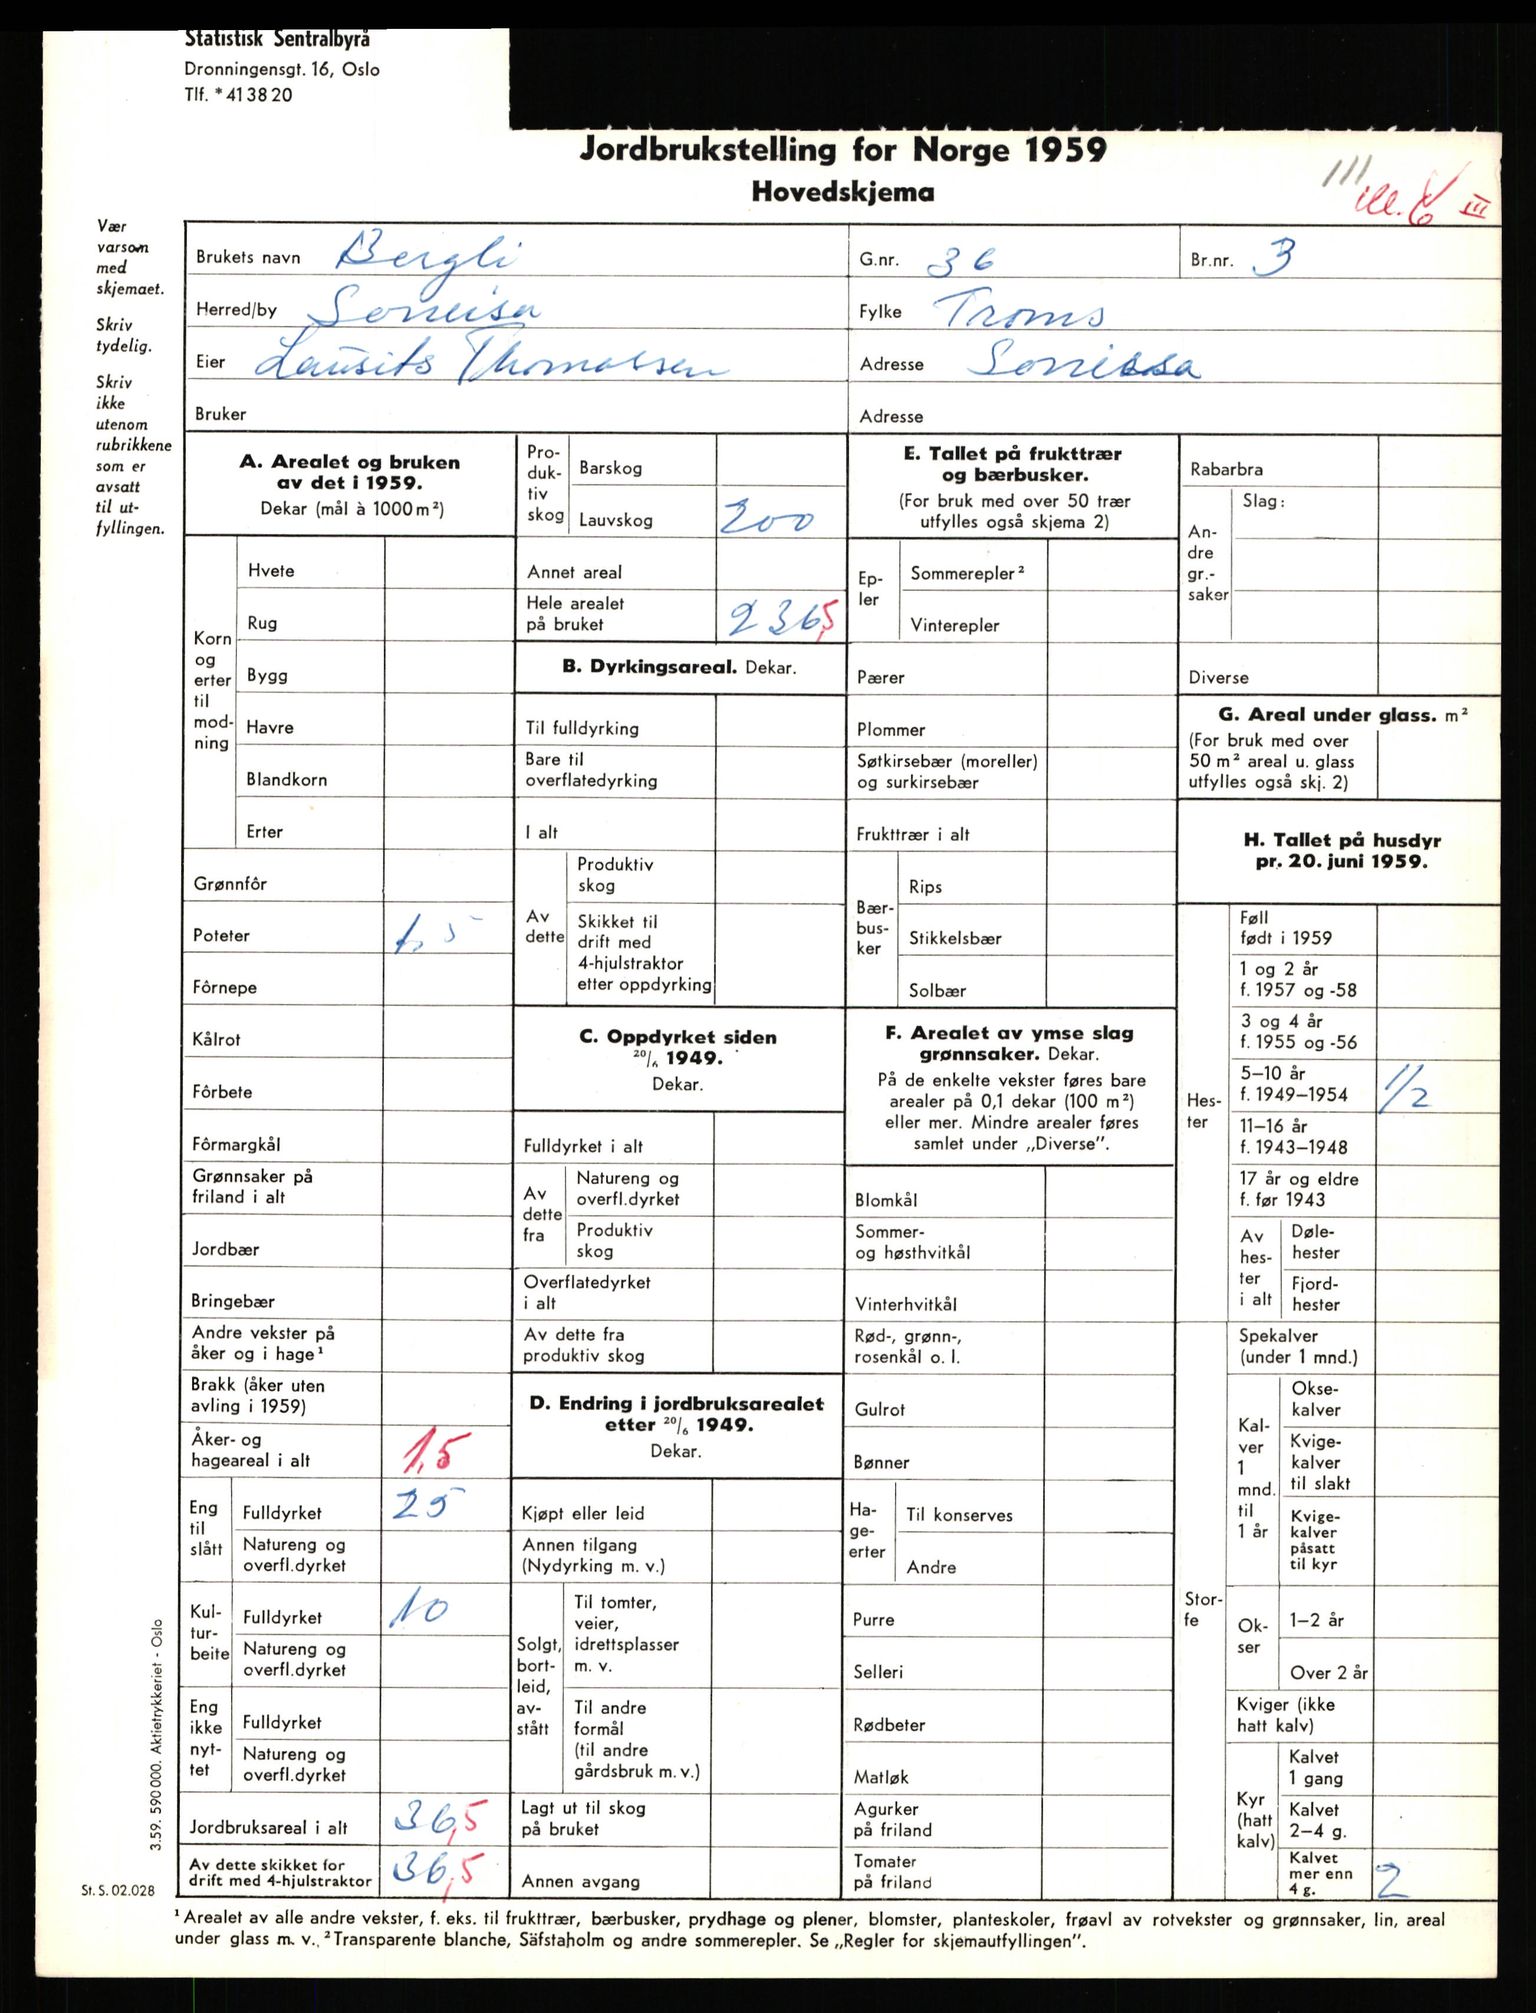 Statistisk Sentralbyrå
Dronningensgt. 16, Oslo
Tlf. *41 38 20
Jordbrukstelling for Norge 1959
Hovedskjema
III
Vær
varsom
med
skjemaet.
Skriv
tydelig.
Skriv
ikke
utenom
rubrikkene
som er
avsatt
til ut-
fyllingen.
Brukets navn Bergli G.nr. 36 Br.nr. 3
Herred/by Fylke Troms
Eier Thomassen Adresse
Bruker Adresse
A. Arealet og bruken
av det i 1959.
Dekar (mål à 1000 m²)
Korn
og
erter
til
mod-
ning
Hvete
Rug
Bygg
Havre
Blandkorn
Erter
Grønnfôr
Poteter 1,5
Fôrnepe
Kålrot
Fôrbete
Fôrmargkål
Grønnsaker på
friland i alt
Jordbær
Bringebær
Andre vekster på
åker og i hage¹
Brakk (åker uten
avling i 1959)
Åker- og
hageareal i alt 1,5
Eng
til
slått
Fulldyrket 25
Natureng og
overfl.dyrket
Kul-
tur-
beite
Fulldyrket 10
Natureng og
overfl.dyrket
Eng
ikke
nyt-
tet
Fulldyrket
Natureng og
overfl.dyrket
Jordbruksareal i alt 36,5
Av dette skikket for
drift med 4-hjulstraktor 36,5
Pro-
duk-
tiv
skog
Barskog
Lauvskog 200
Annet areal
Hele arealet
på bruket 236,5
B. Dyrkingsareal. Dekar.
Til fulldyrking
Bare til
overflatedyrking
I alt
Av
dette
Produktiv
skog
Skikket til
drift med
4-hjulstraktor
etter oppdyrking
C. Oppdyrket siden
20/6 1949.
Dekar.
Fulldyrket i alt
Av
dette
fra
Natureng og
overfl.dyrket
Produktiv
skog
Overflatedyrket
i alt
Av dette fra
produktiv skog
D. Endring i jordbruksarealet
etter 20/6 1949.
Dekar.
Kjøpt eller leid
Annen tilgang
(Nydyrking m. v.)
Solgt,
bort-
leid,
av-
stått
Til tomter,
veier,
idrettsplasser
m. v.
Til andre
formål
(til andre
gårdsbruk m. v.)
Lagt ut til skog
på bruket
Annen avgang
E. Tallet på frukttrær
og bærbusker.
(For bruk med over 50 trær
utfylles også skjema 2)
Ep-
ler
Sommerepler²
Vinterepler
Pærer
Plommer
Søtkirsebær (moreller)
og surkirsebær
Frukttrær i alt
Bær-
bus-
ker
Rips
Stikkelsbær
Solbær
F. Arealet av ymse slag
grønnsaker. Dekar.
På de enkelte vekster føres bare
arealer på 0,1 dekar (100 m²)
eller mer. Mindre arealer føres
samlet under „Diverse”.
Blomkål
Sommer-
og høsthvitkål
Vinterhvitkål
Rød-, grønn-,
rosenkål o. l.
Gulrot
Bønner
Ha-
ge-
erter
Til konserves
Andre
Purre
Selleri
Rødbeter
Matløk
Agurker
på friland
Tomater
på friland
Rabarbra
An-
dre
gr.-
saker
Slag:
Diverse
G. Areal under glass. m²
(For bruk med over
50 m² areal u. glass
utfylles også skj. 2)
H. Tallet på husdyr
pr. 20. juni 1959.
Hes-
ter
Føll
født i 1959
1 og 2 år
f. 1957 og -58
3 og 4 år
f. 1955 og -56
5–10 år
f. 1949–1954 1/2
11–16 år
f. 1943–1948
17 år og eldre
f. før 1943
Av
hes-
ter
i alt
Døle-
hester
Fjord-
hester
Stor-
fe
Spekalver
(under 1 mnd.)
Kal-
ver
1
mnd.
til
1 år
Okse-
kalver
Kvige-
kalver
til slakt
Kvige-
kalver
påsatt
til kyr
Ok-
ser
1–2 år
Over 2 år
Kviger (ikke
hatt kalv)
Kyr
(hatt
kalv)
Kalvet
1 gang
Kalvet
2–4 g.
Kalvet
mer enn
4 g. 2
3.59. 590 000. Aktietrykkeriet - Oslo
St. S. 02.028
¹ Arealet av alle andre vekster, f. eks. til frukttrær, bærbusker, prydhage og plener, blomster, planteskoler, frøavl av rotvekster og grønnsaker, lin, areal
under glass m. v. ² Transparente blanche, Säfstaholm og andre sommerepler. Se „Regler for skjemautfyllingen”.